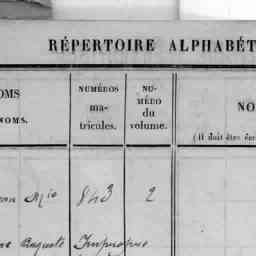 RÉPERTOIRE ALPHABÉT
OMS
NOMS.
NUMÉROS
ma-
tricules.
NU-
MÉRO
du
volume.
NO
(Il doit être écr
843 2
Auguste Impropre